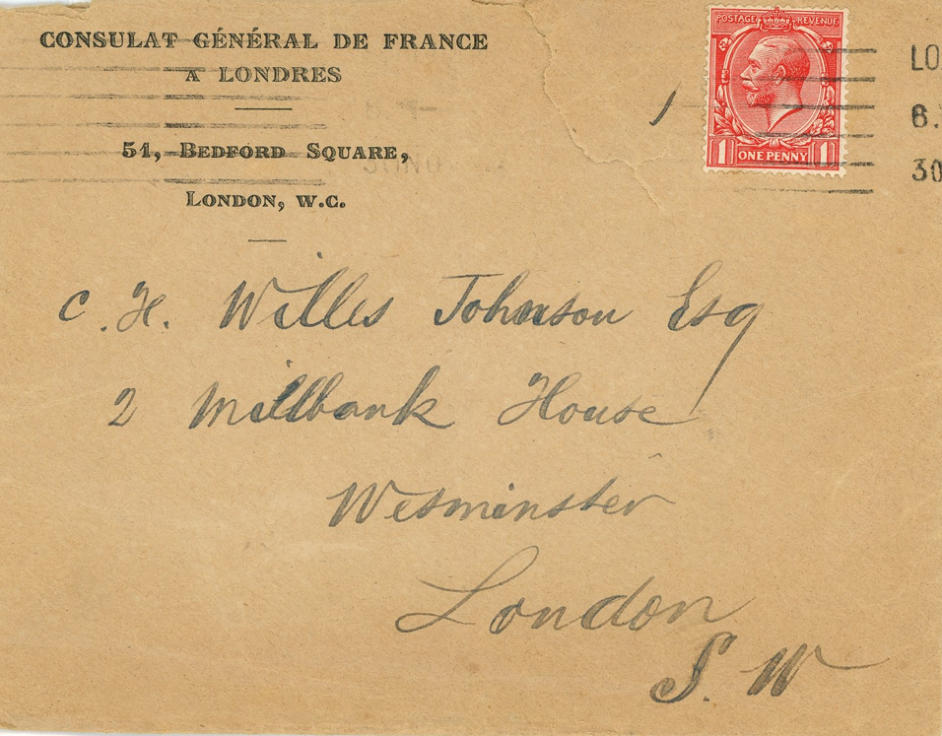 CONSULAT GÉNÉRAL DE FRANCE
A LONDRES
51, BEDFORD SQUARE,
LONDON, W.C.
POSTAGE REVENUE
1 ONE PENNY 1
LO
8.
30
C. H. Willes Johnson Esq
2 Millbank House
Westminster
London
S. W